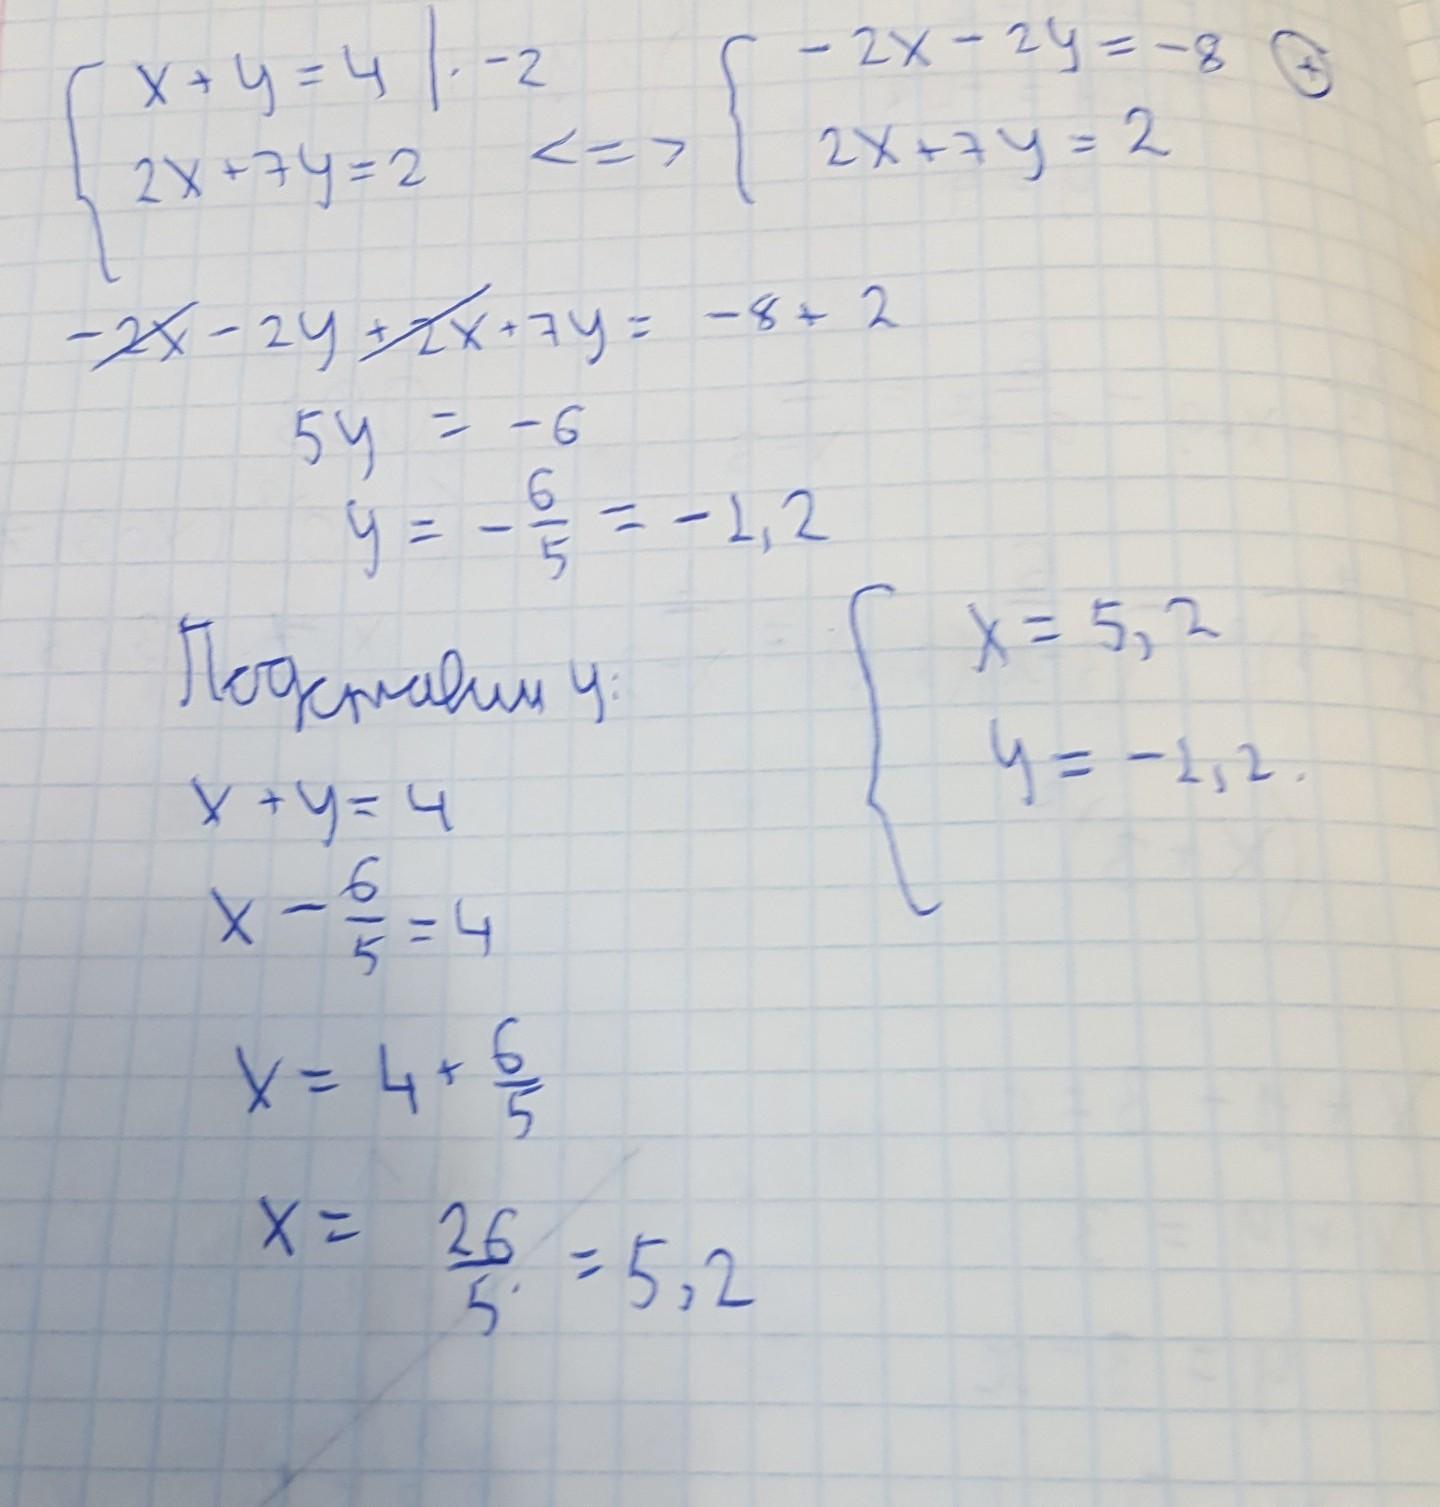 x + y = 4 | · -2
2x + 7y = 2 <=>
-2x - 2y = -8 +
2x + 7y = 2
-2x - 2y + 2x + 7y = -8 + 2
5y = -6
y = -6/5 = -1,2
Подставим y:
x + y = 4
x - 6/5 = 4
x = 4 + 6/5
x = 26/5 = 5,2
x = 5,2
y = -1,2.